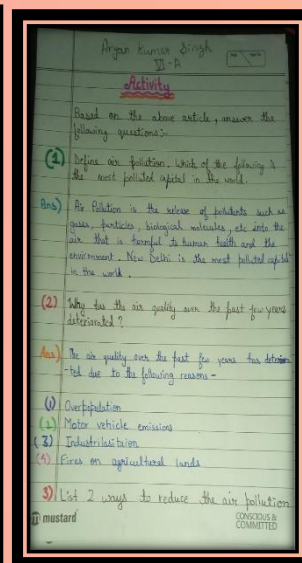 Aryan Kumar Singh
VI-A
Activity
Based on the above article, answer the
following questions:-
(1) Define air pollution. Which of the following is
the most polluted capital in the world.
Ans) Air Pollution is the release of pollutants such as
gases, particles, biological molecules, etc into the
air that is harmful to human health and the
environment. New Delhi is the most polluted capital
in the world.
(2) Why has the air quality over the past few years
deteriorated?
Ans) The air quality over the past few years has deterior
-ted due to the following reasons-
(1) Overpopulation
(2) Motor vehicle emissions
(3)
(4) Fires on agricultural lands
3) List 2 ways to reduce the air pollution
mustard
CONSCIOUS &
COMMITTED